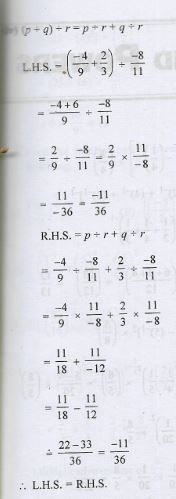 (p + q) ÷ r = p ÷ r + q ÷ r
L.H.S. = (-4/9 + 2/3) ÷ -8/11
= -4 + 6/9 ÷ -8/11
= 2/9 ÷ -8/11 = 2/9 × 11/-8
= 11/-36 = -11/36
R.H.S. = p ÷ r + q ÷ r
= -4/9 ÷ -8/11 + 2/3 ÷ -8/11
= -4/9 × 11/-8 + 2/3 × 11/-8
= 11/18 + 11/-12
= 11/18 - 11/12
= 22 - 33/36 = -11/36
∴ L.H.S. = R.H.S.